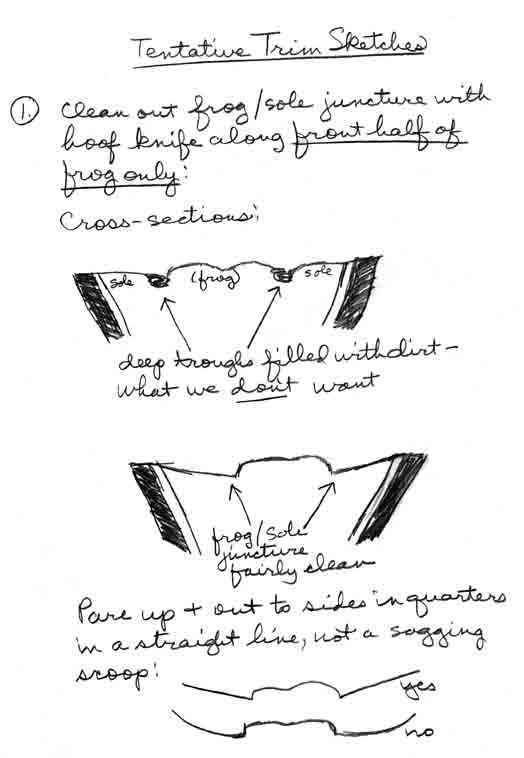 Tentative Trim Sketches
1. Clean out frog/sole juncture with
hoof knife along front half of
frog only:
Cross-sections:
sole (frog) sole
deep troughs filled with dirt –
what we don't want
frog/sole
juncture
fairly clean
Pare up + out to sides in quarters
in a straight line, not a sagging
scoop:
yes
no